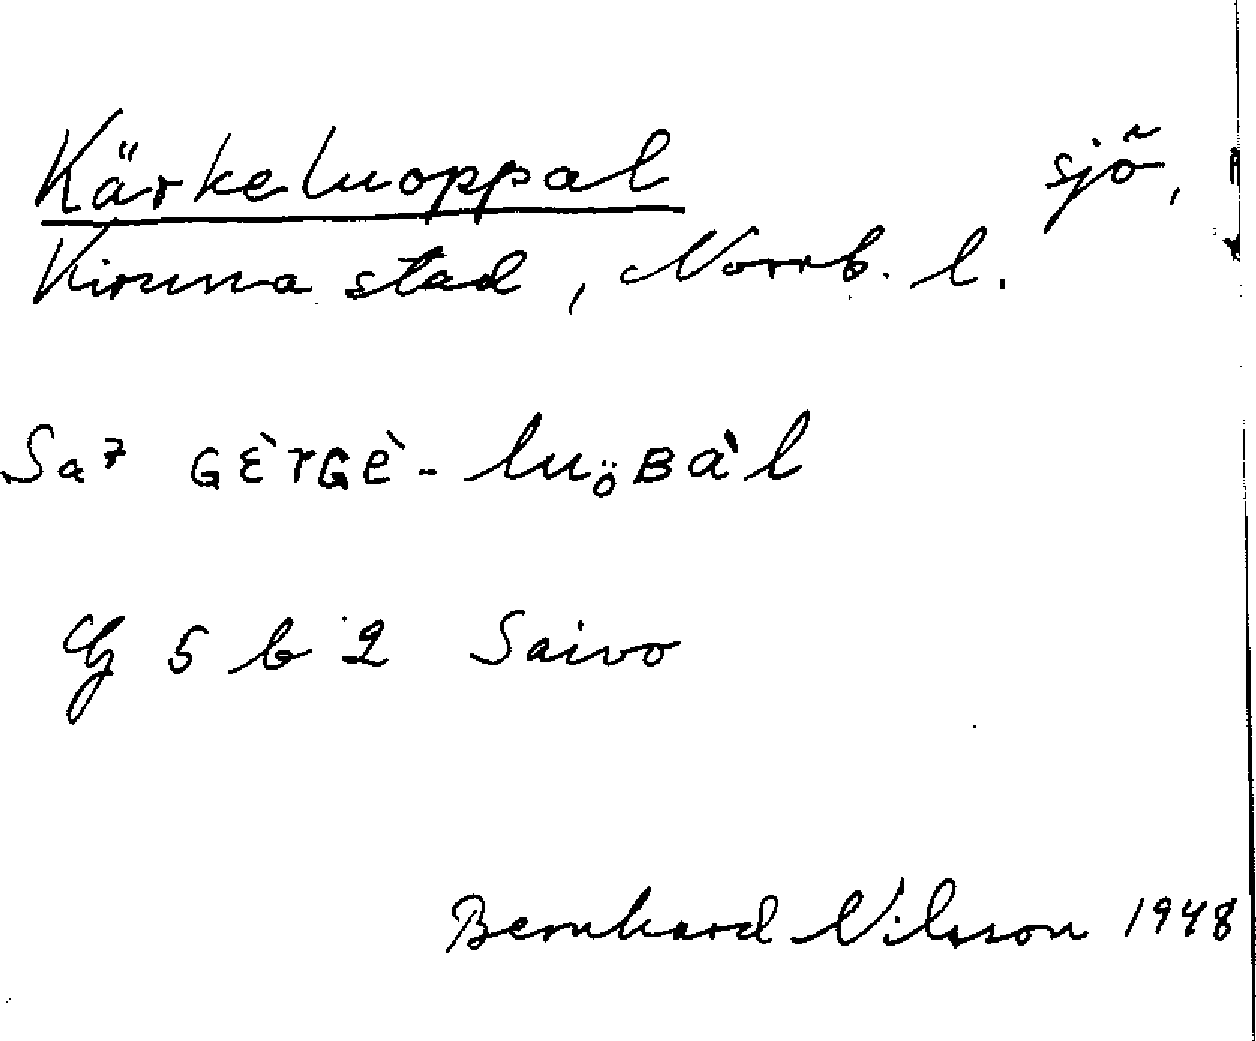 Kärkeluoppal sjö,
Kiruna stad, Norrb. l.
Sa7 GÈrGè-luöBàl
G 5 b 2 Saivo
Bernhard Nilsson 1948